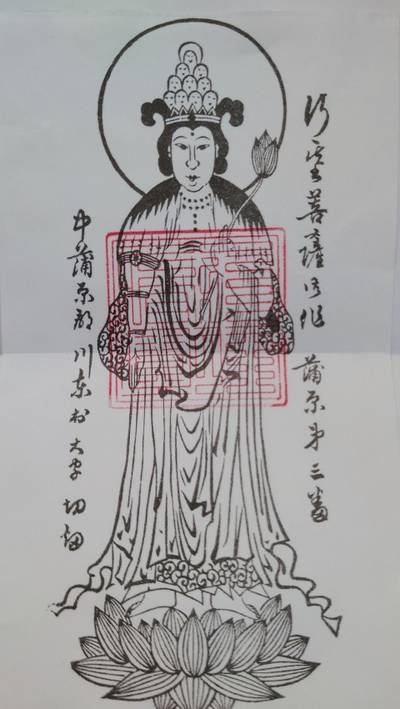 行基菩薩御作 蒲原第三番
中蒲原郡川東村大字切畑